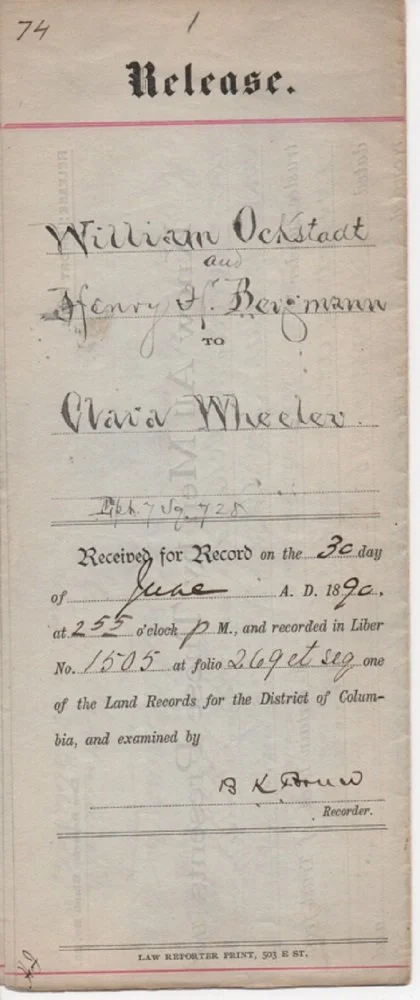 74 1
Release.
William Ockstadt
and
Henry H. Bergmann
TO
Clara Wheeler.
7 Sq. 728
Received for Record on the 30 day
of June A. D. 1890,
at 2 55 o'clock P M., and recorded in Liber
No. 1505 at folio 269 et seq one
of the Land Records for the District of Colum-
bia, and examined by
B K Bruce
Recorder.
LAW REPORTER PRINT, 503 E ST.